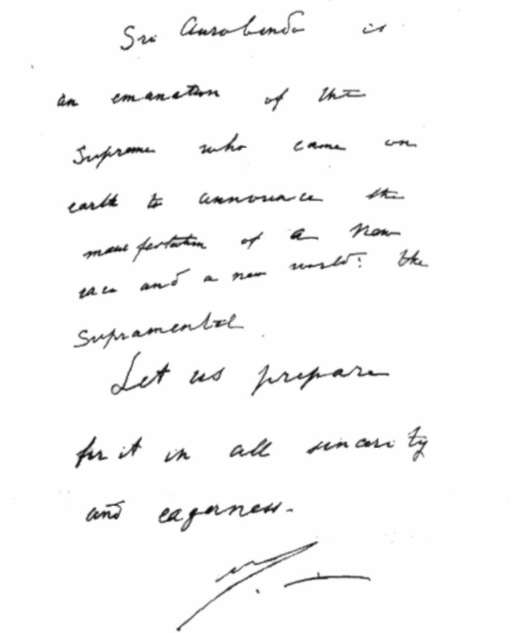 Sri Aurobindo is
an emanation of the
Supreme who came on
earth to announce the
manifestation of a new
race and a new world: the
Supramental.
Let us prepare
for it in all sincerity
and eagerness.